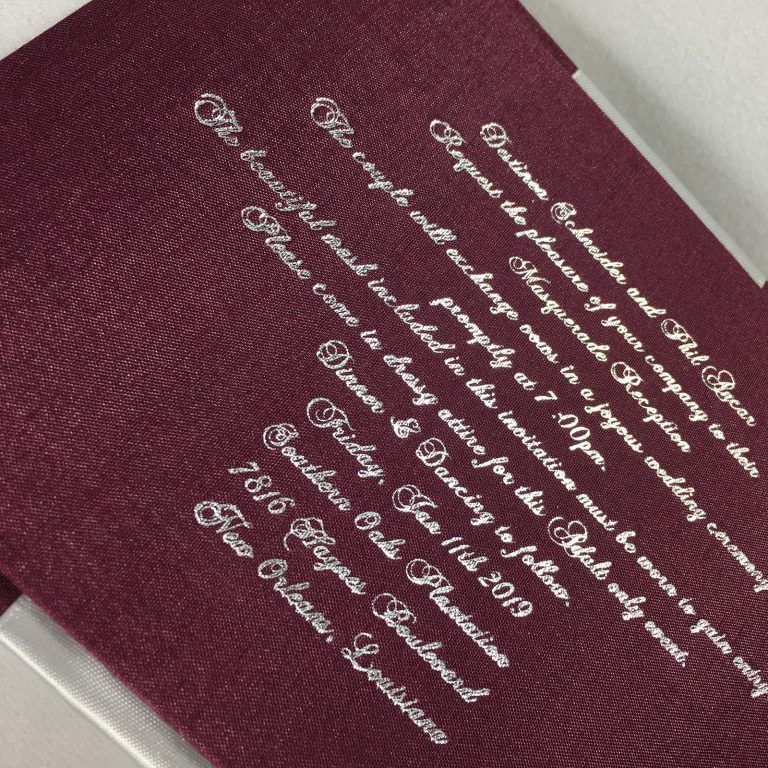 Destinea Schneider and Phil Ancar
Request the pleasure of your company to their
Masquerade Reception
The couple will exchange vows in a joyous wedding ceremony
promptly at 7:00pm.
The beautiful mask included in this invitation must be worn to gain entry
Please come in dressy attire for this Adult only event.
Dinner & Dancing to follow.
Friday, Jan 11th 2019
Southern Oaks Plantation
7816 Haynes Boulevard
New Orleans, Louisiana